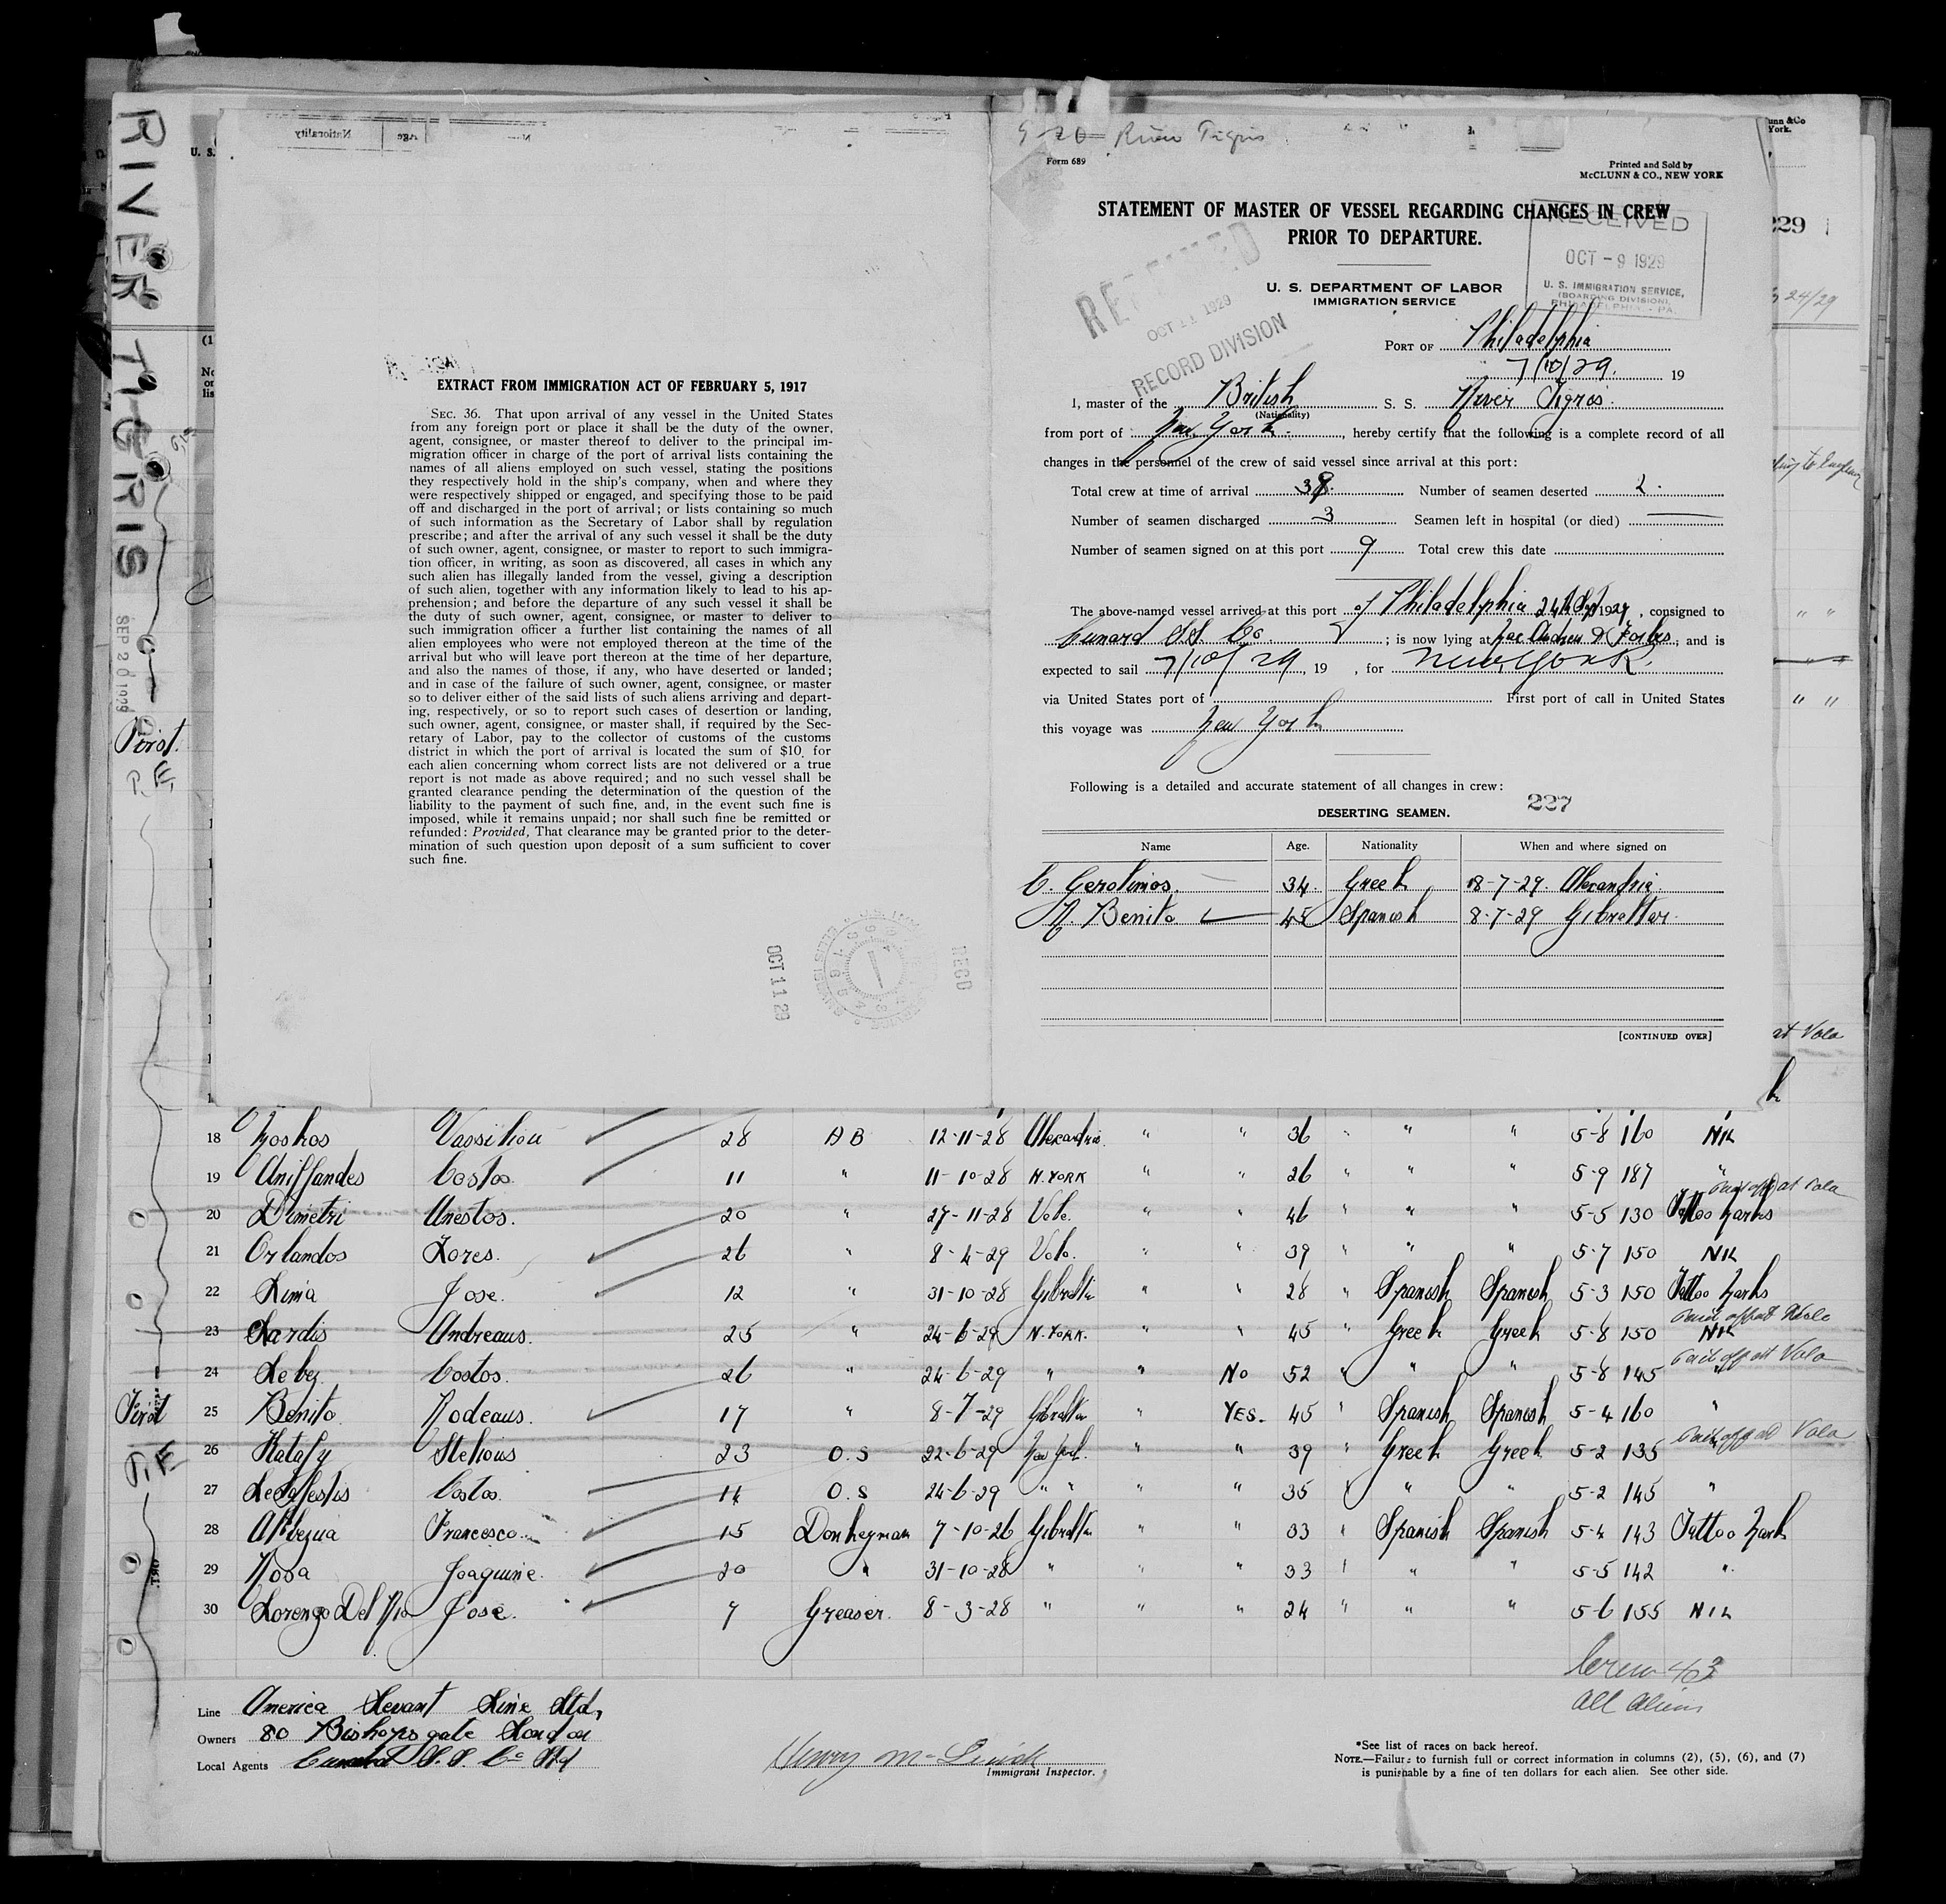 RIVER TIGRIS
SEP 20 1929
First.
P.E.
First
P.E
Nationality
Age
U. S.
EXTRACT FROM IMMIGRATION ACT OF FEBRUARY 5, 1917
SEC. 36. That upon arrival of any vessel in the United States
from any foreign port or place it shall be the duty of the owner,
agent, consignee, or master thereof to deliver to the principal im-
migration officer in charge of the port of arrival lists containing the
names of all aliens employed on such vessel, stating the positions
they respectively hold in the ship's company, when and where they
were respectively shipped or engaged, and specifying those to be paid
off and discharged in the port of arrival; or lists containing so much
of such information as the Secretary of Labor shall by regulation
prescribe; and after the arrival of any such vessel it shall be the duty
of such owner, agent, consignee, or master to report to such immigra-
tion officer, in writing, as soon as discovered, all cases in which any
such alien has illegally landed from the vessel, giving a description
of such alien, together with any information likely to lead to his ap-
prehension; and before the departure of any such vessel it shall be
the duty of such owner, agent, consignee, or master to deliver to
such immigration officer a further list containing the names of all
alien employees who were not employed thereon at the time of the
arrival but who will leave port thereon at the time of her departure,
and also the names of those, if any, who have deserted or landed;
and in case of the failure of such owner, agent, consignee, or master
so to deliver either of the said lists of such aliens arriving and depart-
ing, respectively, or so to report such cases of desertion or landing,
such owner, agent, consignee, or master shall, if required by the Sec-
retary of Labor, pay to the collector of customs of the customs
district in which the port of arrival is located the sum of $10 for
each alien concerning whom correct lists are not delivered or a true
report is not made as above required; and no such vessel shall be
granted clearance pending the determination of the question of the
liability to the payment of such fine, and, in the event such fine is
imposed, while it remains unpaid; nor shall such fine be remitted or
refunded: Provided, That clearance may be granted prior to the deter-
mination of such question upon deposit of a sum sufficient to cover
such fine.
OCT 11 29
RECD
River Tigris
Form 689
Printed and Sold by
McCLUNN & CO., NEW YORK
STATEMENT OF MASTER OF VESSEL REGARDING CHANGES IN CREW
PRIOR TO DEPARTURE.
RECEIVED
OCT - 9 1929
U. S. IMMIGRATION SERVICE,
(BOARDING DIVISION),
PHILADELPHIA - PA.
RECEIVED
OCT 11 1929
RECORD DIVISION
U. S. DEPARTMENT OF LABOR
IMMIGRATION SERVICE
PORT OF Philadelphia
7/10/29. 19
I, master of the British S. S. River Tigris.
(Nationality)
from port of New York., hereby certify that the following is a complete record of all
changes in the personnel of the crew of said vessel since arrival at this port:
Total crew at time of arrival 38. Number of seamen deserted 2.
Number of seamen discharged 3 Seamen left in hospital (or died)
Number of seamen signed on at this port 9 Total crew this date
The above-named vessel arrived at this port of Philadelphia 24th Sep 1929, consigned to
Cunard S.S. Co. ; is now lying at Mac Andrew & Forbes, and is
expected to sail 7/10/29, 19 , for New York.
via United States port of First port of call in United States
this voyage was New York
Following is a detailed and accurate statement of all changes in crew:
227
DESERTING SEAMEN.
Name Age. Nationality When and where signed on
C. Gerolimos. 34. Greek 8-7-29. Alexandria.
R. Benito 45 Spanish 8-7-29 Gibraltar.
[CONTINUED OVER]
unn &Co
York.
229
24/29
at Volo
18 Moshos Vassiliou 28 AB 12-11-28 Alexandria. " " 36 " " " 5-8 160 Nil
19 Aniffandes Costas. 11 " 11-10-28 N.YORK " " 26 " " " 5-9 187 "
Paid off at Volo
20 Dimitri Anestos. 20 " 27-11-28 Volo. " " 46 " " " 5-5 130 Tattoo Marks
21 Orlandos Lores. 26 " 8-4-29 Volo. " " 39 " " " 5-7 150 Nil
22 Lima Jose. 12 " 31-10-28 Gibraltar " " 28 " Spanish Spanish 5-3 150 Tattoo Marks
Paid off at Volo
23 Lardis Andreaus. 25 " 24-6-29 N.YORK. " " 45 " Greek Greek 5-8 150 Nil
Paid off at Volo
24 Costos. 26 " 24-6-29 " " No 52 " " " 5-8 145 "
25 Benito. Rodeaus. 17 " 8-7-29 Gibraltar " YES. 45 " Spanish Spanish 5-4 160 "
Paid off at Volo
26 Katafy Stelious 23 O.S 22-6-29 New York. " " 39 " Greek Greek 5-2 135
27 Costos. 14 O.S 24-6-29 " " " " 35 " " " 5-2 145 "
28 Francesco. 15 Donkeyman 7-10-26 Gibraltar " " 33 " Spanish Spanish 5-4 143 Tattoo Mark
29 Rosa Joaquine. 20 " 31-10-28 " " " 33 " " " 5-5 142 "
30 Lorenzo Del Rio Jose. 7 Greaser. 8-3-28 " " " 24 " " " 5-6 155 NIL
Crew 43
all aliens
Line America Levant Line Ltd,
Owners 80 Bishopsgate London
Local Agents Cunard S.S. Co Ltd
Immigrant Inspector.
*See list of races on back hereof.
NOTE.—Failure to furnish full or correct information in columns (2), (5), (6), and (7)
is punishable by a fine of ten dollars for each alien. See other side.